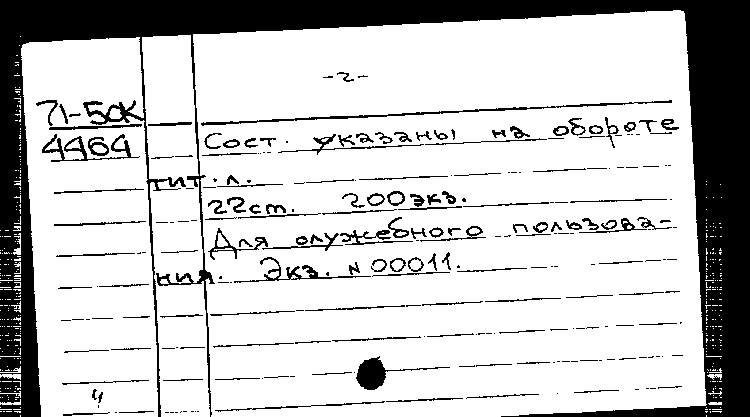 -2-
71-50К
4464
Сост. указаны на обороте
тит. л.
22 ст. 200 экз.
Для служебного пользова-
ния. Экз. N 00011.
4